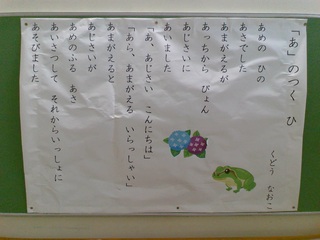 「あ」のつく　ひ
くどう　なおこ
あめの　ひの
あさでした
あまがえるが
あっちから　ぴょん
あじさいに
あいました
「あ、あじさい　こんにちは」
「あら、あまがえる　いらっしゃい」
あまがえると
あじさいが
あめのふる　あさ
あいさつして　それからいっしょに
あそびました